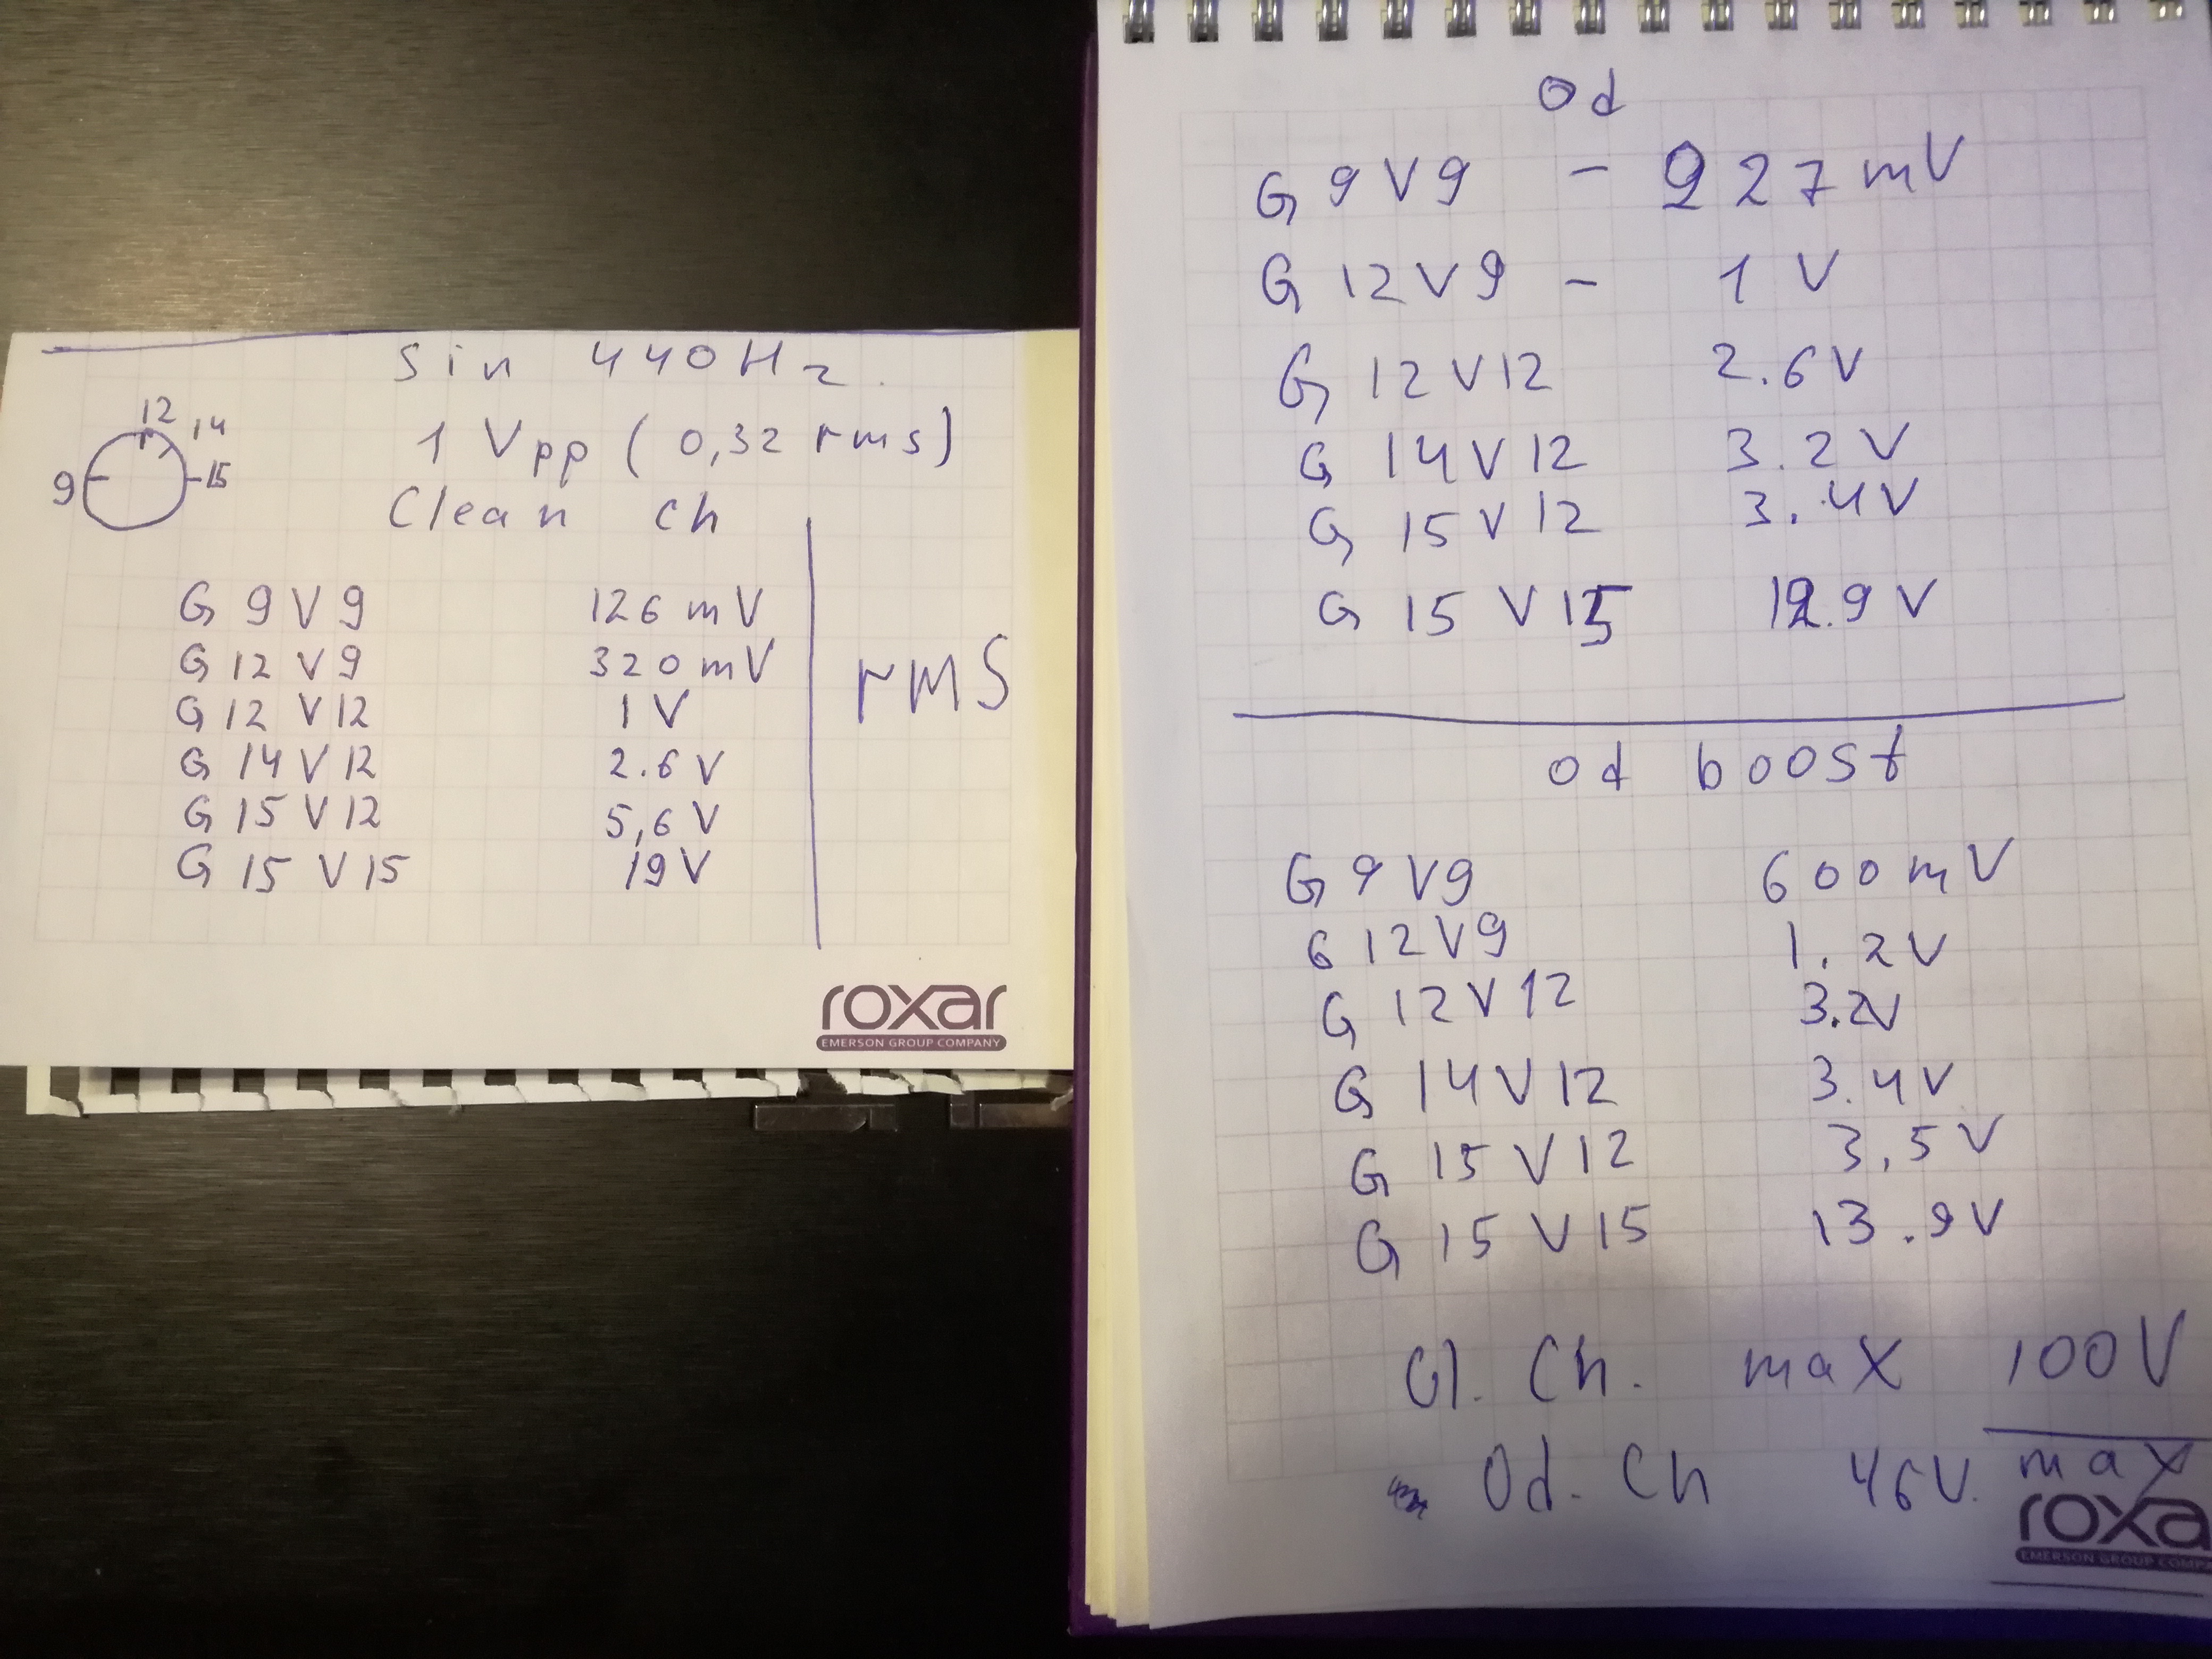 sin 440Hz.
12
14
9
15
1 Vpp (0,32 rms)
Clean ch
G 9 V 9 126 mV
G 12 V 9 320 mV
G 12 V 12 1 V
G 14 V 12 2.6 V
G 15 V 12 5,6 V
G 15 V 15 19 V
rms
roxar
EMERSON GROUP COMPANY
Od
G 9 V 9 - 927 mV
G 12 V 9 - 1 V
G 12 V 12 2.6 V
G 14 V 12 3.2 V
G 15 V 12 3.4 V
G 15 V 15 12.9 V
Od boost
G 9 V 9 600 mV
G 12 V 9 1.2 V
G 12 V 12 3.2V
G 14 V 12 3.4 V
G 15 V 12 3,5 V
G 15 V 15 13.9 V
Cl. Ch. max 100V
Od. Ch 46V. max
roxa
EMERSON GROUP COMPA